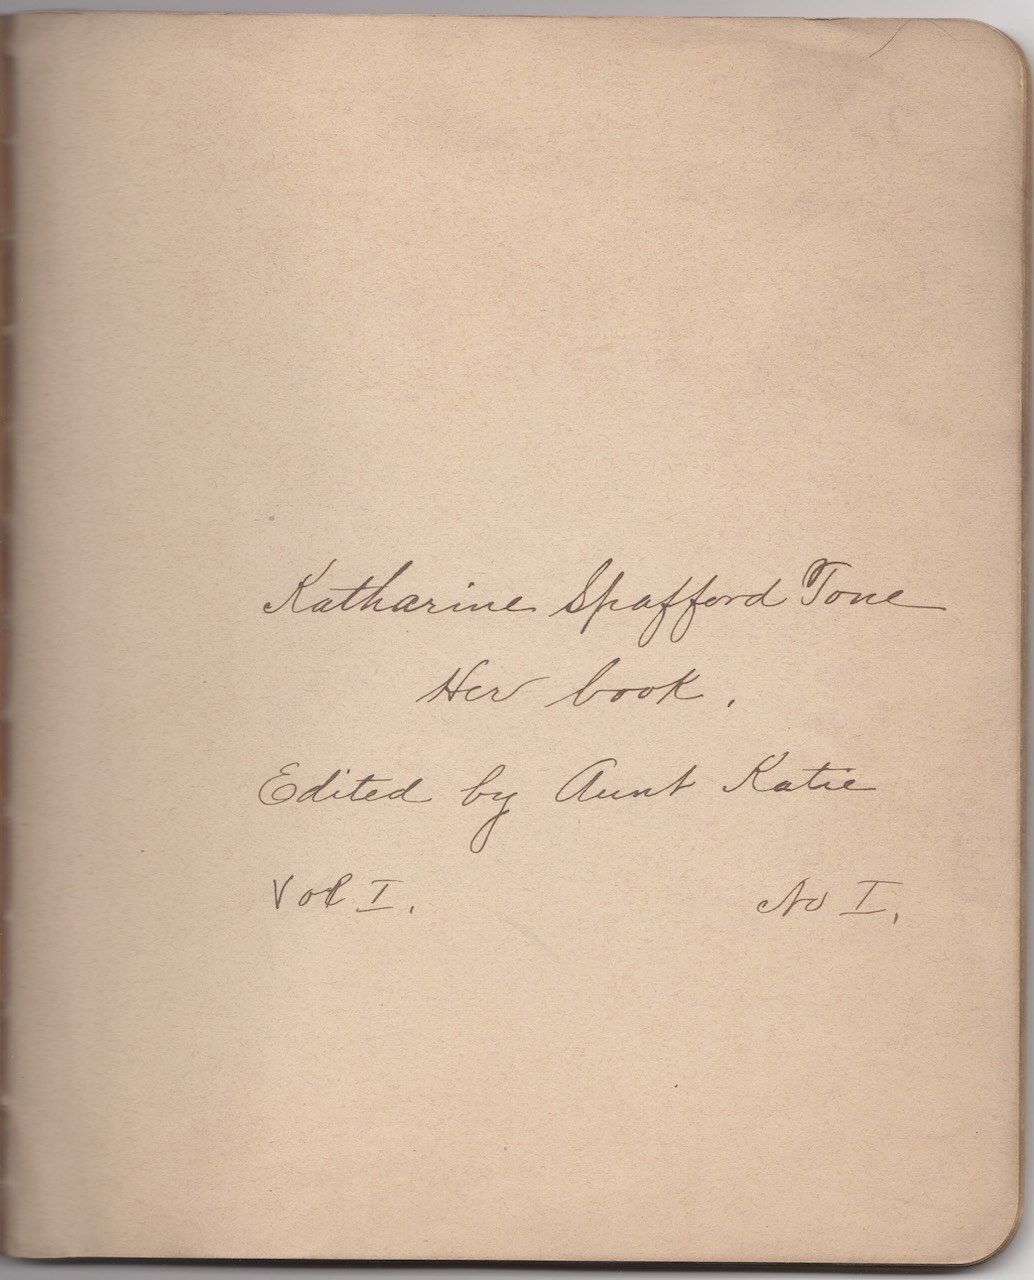 Katharine Spafford Tone
Her book.
Edited by Aunt Katie
Vol I. No I.